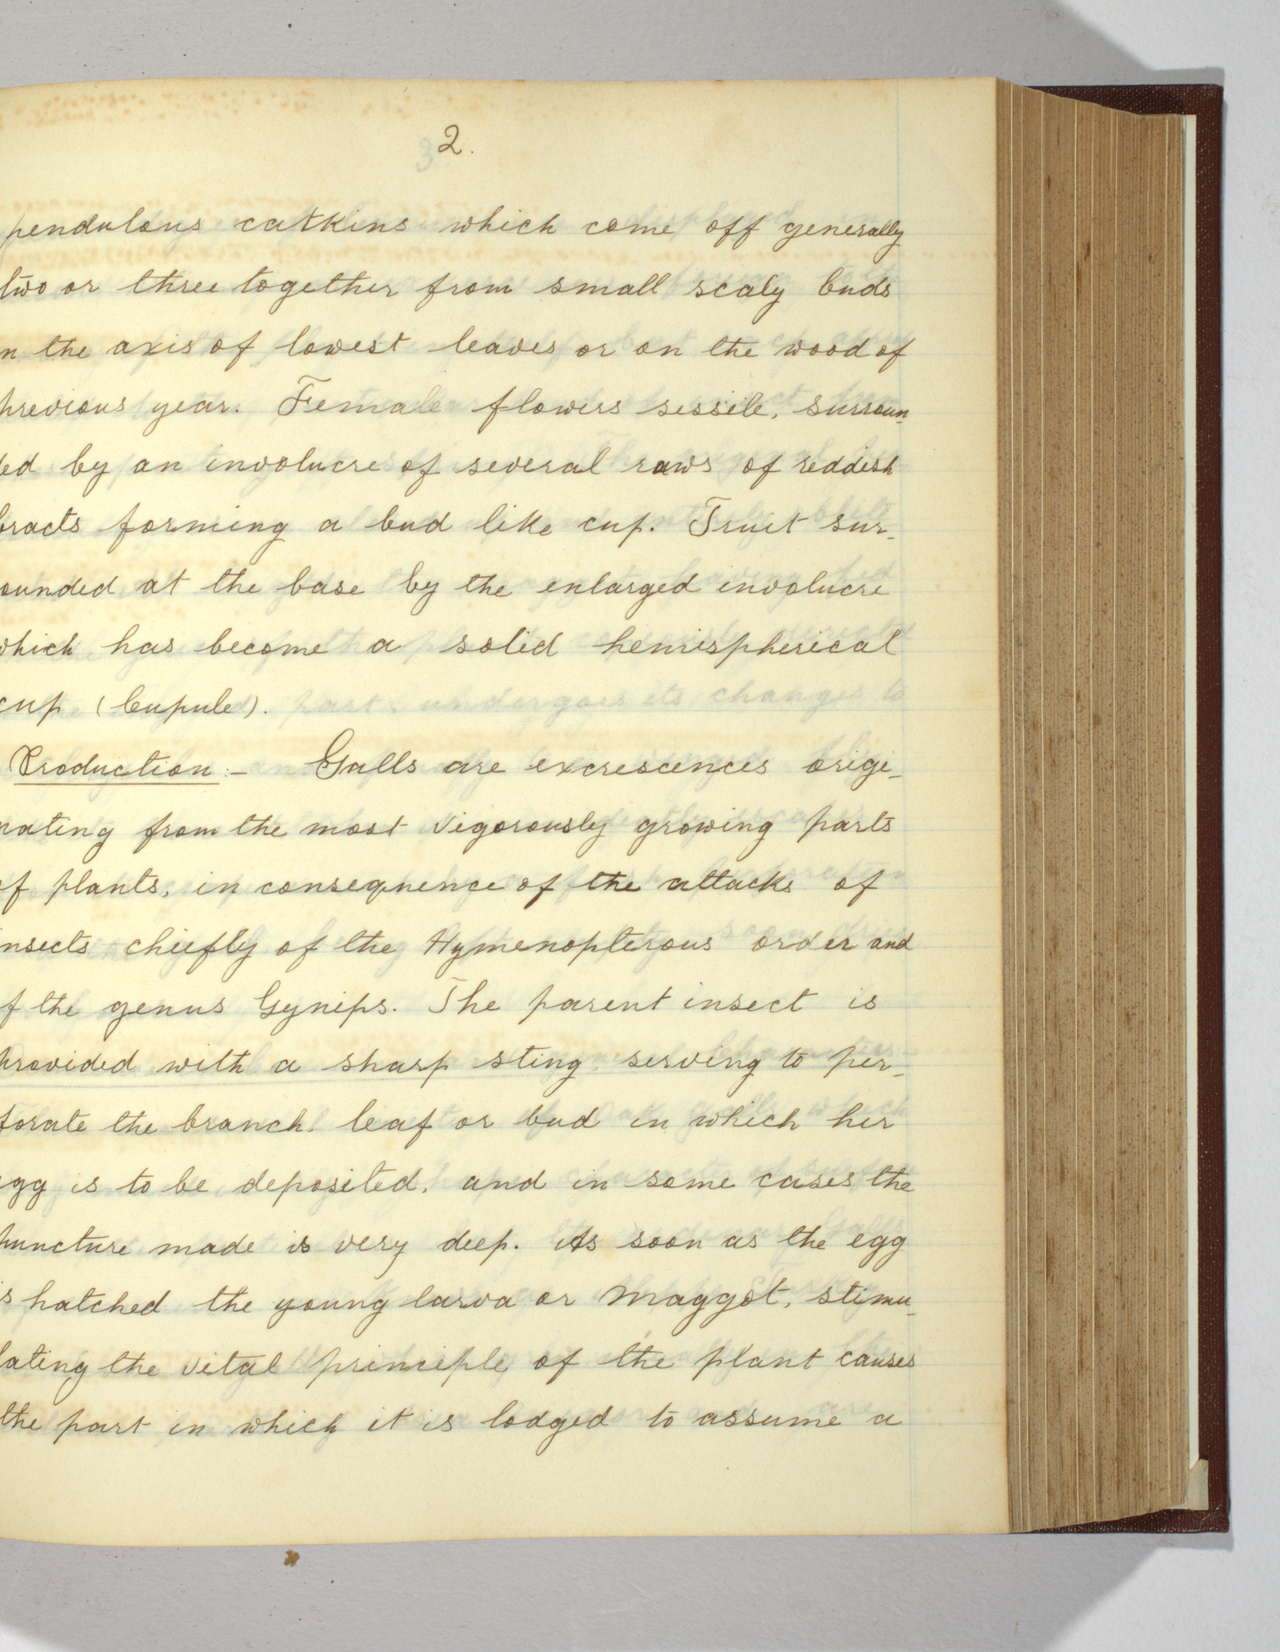 2.
pendulous catkins which come off generally
two or three together from small scaly buds
n the axis of lowest leaves or on the wood of
previous year. Female flowers sessile, surroun-
ded by an involucre of several raws of reddish
bracts forming a bud like cup. Fruit sur-
ounded at the base by the enlarged involucre
which has become a solid hemispherical
cup (Cupule).
Production:- Galls are excrescences origi-
nating from the most vigorously growing parts
of plants, in consequence of the attacks of
insects chiefly of the Hymenopterous order and
f the genus Cynips. The parent insect is
provided with a sharp sting serving to per-
forate the branch, leaf or bud in which her
egg is to be deposited, and in some cases the
puncture made is very deep. As soon as the egg
is hatched the young larva or Maggot, stimu-
lating the vital principle of the plant causes
the part in which it is lodged to assume a